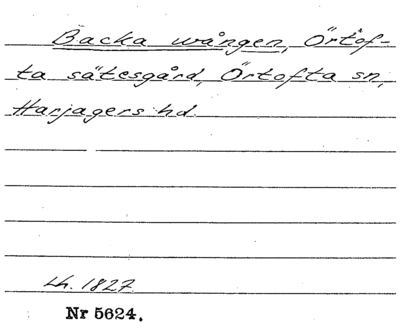 Backa wången, Örtof-
ta sätesgård, Örtofta sn,
Harjagers hd.
Lh. 1827.
Nr 5624.